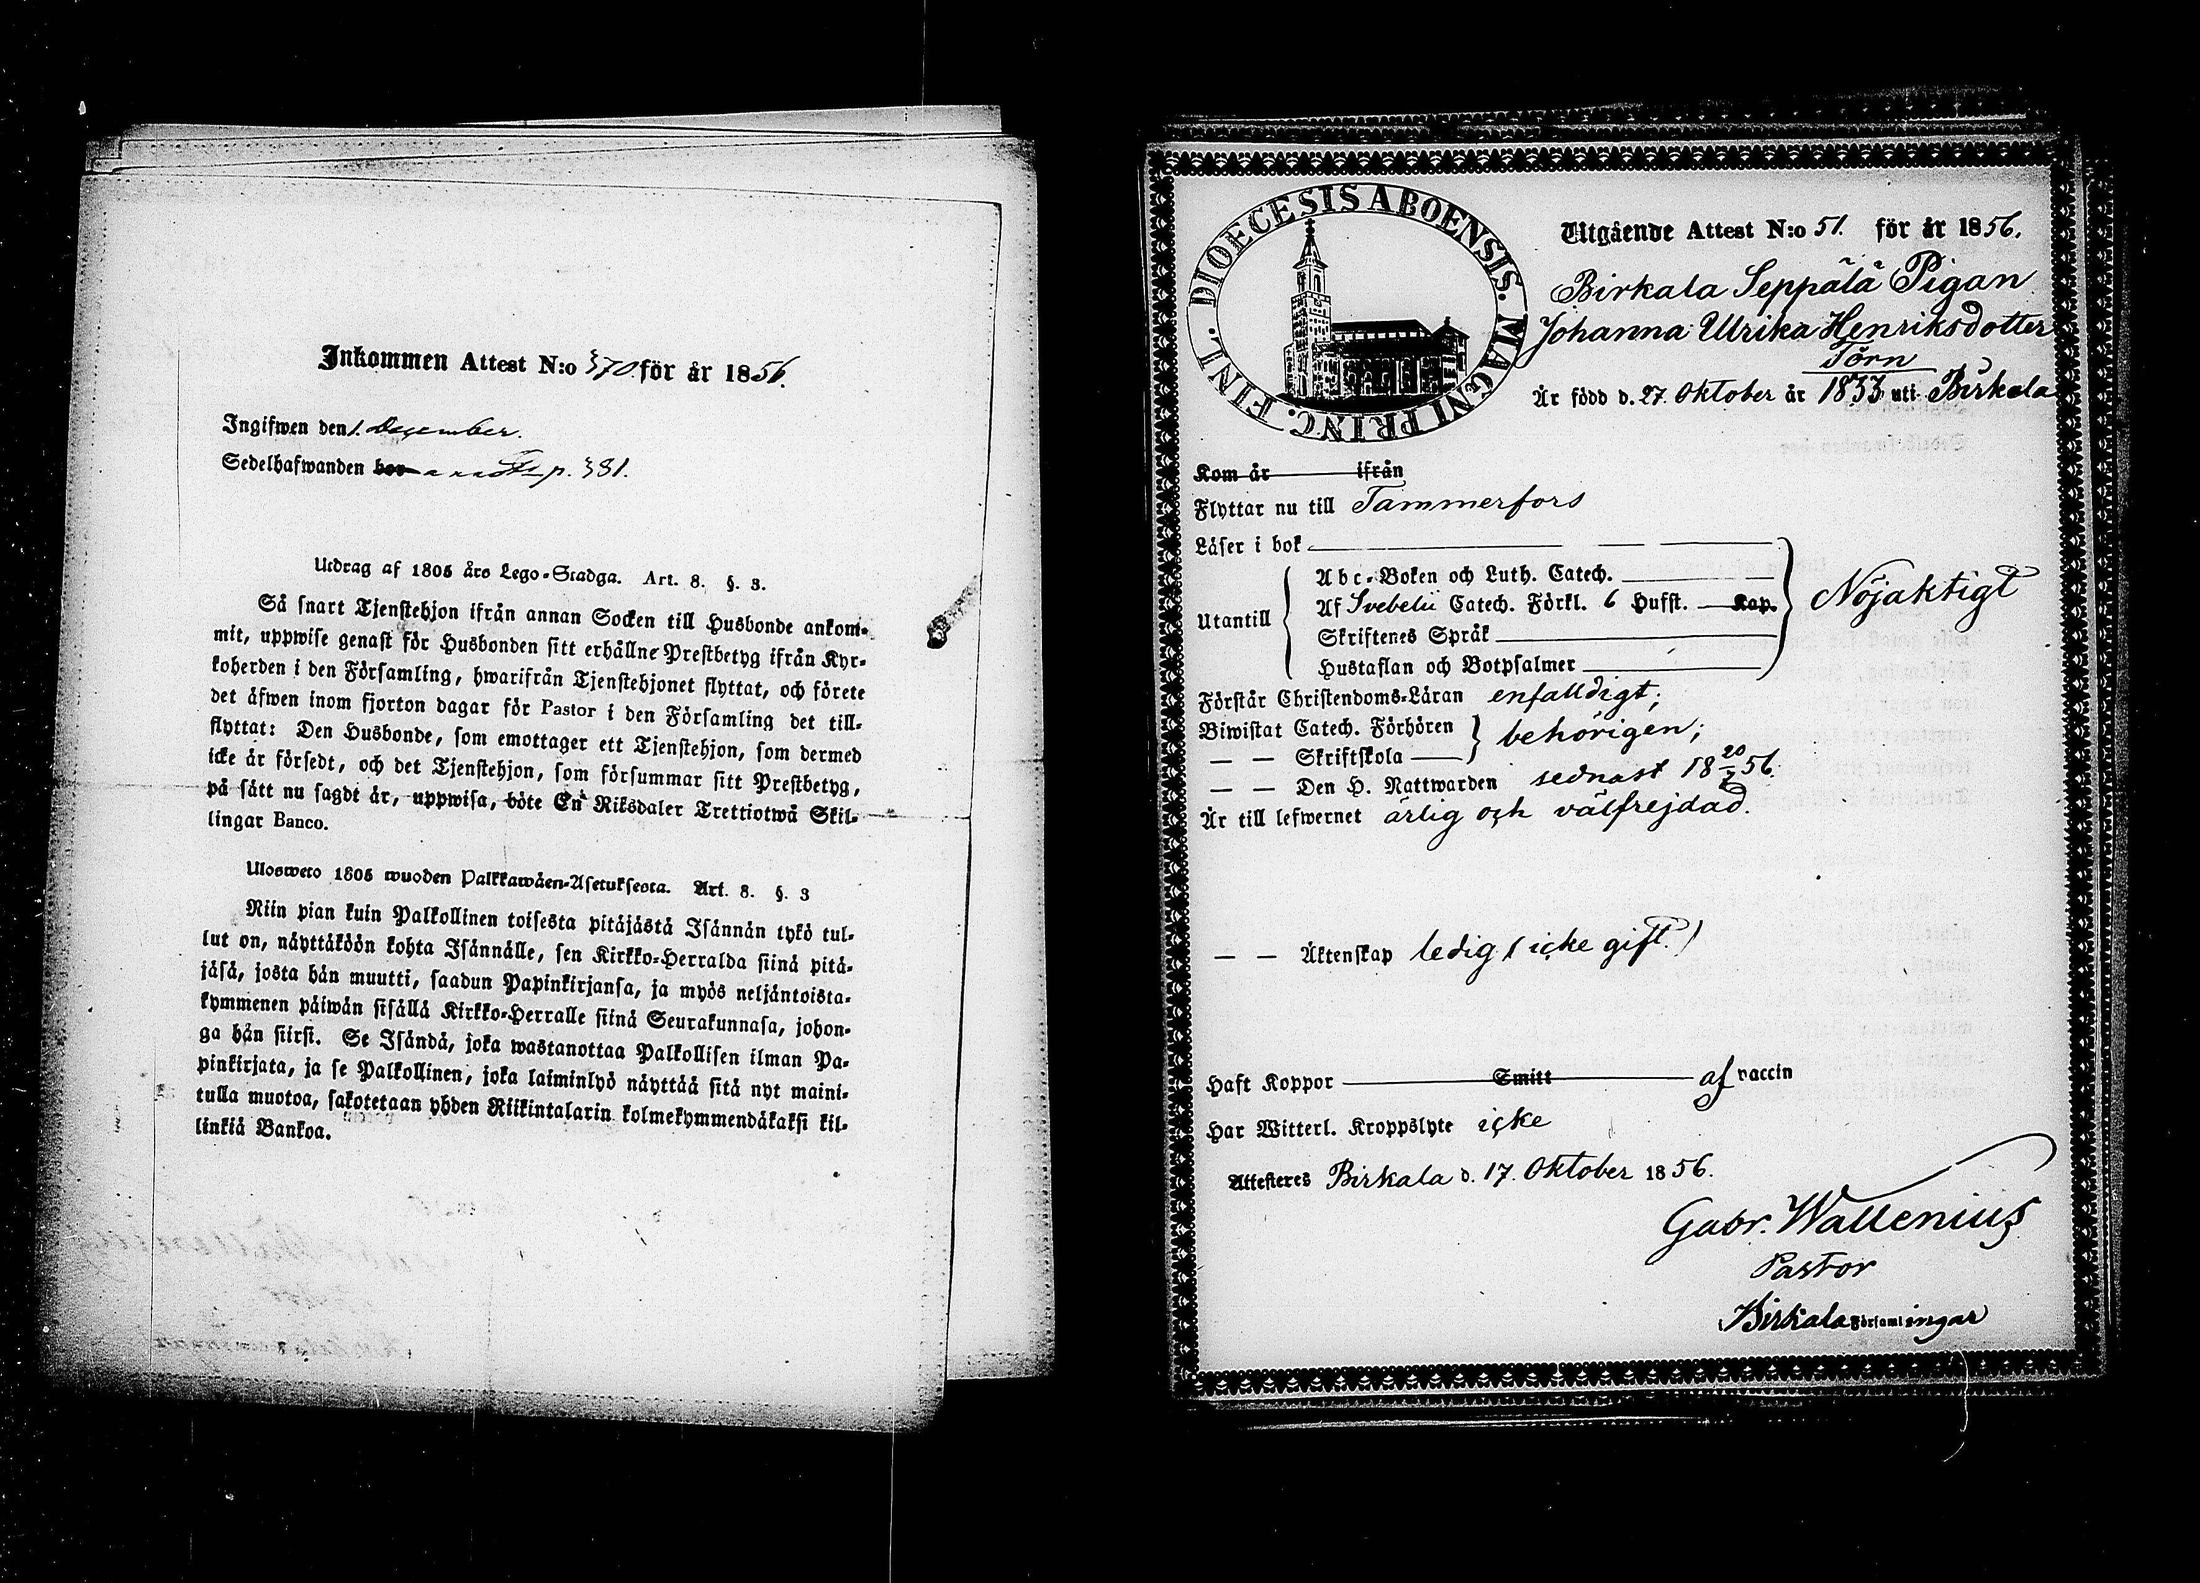 Inkommen Attest N:o 370. för år 1856.
Ingifwen den 1. December.
Sedelhafwanden bor p. 381.
Utdrag af 1805 års Lego-Stadga. Art. 8. §. 3.
Så snart Tjenstehjon ifrån annan Socken till Husbonde ankom-
mit, uppwise genast för Husbonden sitt erhållne Prestbetyg ifrån Kyr-
koherden i den Församling, hwarifrån Tjenstehjonet flyttat, och förete
det äfwen inom fjorton dagar för Pastor i den Församling det till-
flyttat: Den Husbonde, som emottager ett Tjenstehjon, som dermed
icke är försedt, och det Tjenstehjon, som försummar sitt Prestbetyg,
på sätt nu sagdt är, uppwisa, böte En Riksdaler Trettiotwå Skil-
lingar Banco.
Ulosweto 1805 wuoden Palkkawäen-Asetuksesta. Art. 8. §. 3
Niin pian kuin Palkollinen toisesta pitäjästä Isännän tykö tul-
lut on, näyttäköön kohta Isännälle, sen Kirkko-Herralda siinä pitä-
jäsä, josta hän muutti, saadun Papinkirjansa, ja myös neljäntoista-
kymmenen päiwän sisällä Kirkko-Herralle siinä Seurakunnasa, johon-
ga hän siirsi. Se Isändä, joka wastanottaa Palkollisen ilman Pa-
pinkirjata, ja se Palkollinen, joka laiminlyö näyttää sitä nyt maini-
tulla muotoa, sakotetaan yhden Riikintalarin kolmekymmendäkaksi kil-
linkiä Bankoa.
DIOECESIS ABOENSIS. MAGNI PRINC. FINL.
Utgående Attest N:o 51. för år 1856.
Birkala Seppälä Pigan
Johanna Ulrika Henriksdotter
Törn
Är född d. 27. Oktober år 1833 uti Birkala
Kom år ifrån
Flyttar nu till Tammerfors
Läser i bok
Utantill
Abc-Boken och Luth. Catech.
Af Svebelii Catech. Förkl. 6 Hufst. Kap.
Skriftenes Språk
Hustaflan och Botpsalmer
Nöjaktigt
Förstår Christendoms-Läran enfalldigt;
Biwistat Catech. Förhören
— — Skriftskola
behörigen;
— — Den H. Nattwarden sednast 18 20/7 56.
Är till lefwernet ärlig och välfrejdad.
— — Äktenskap ledig (icke gift.)
Haft Koppor Smitt af vaccin
Har Witterl. Kroppslyte icke
Attesteres Birkala d. 17. Oktober 1856.
Gabr. Wallenius
Pastor
Birkala Församlingar